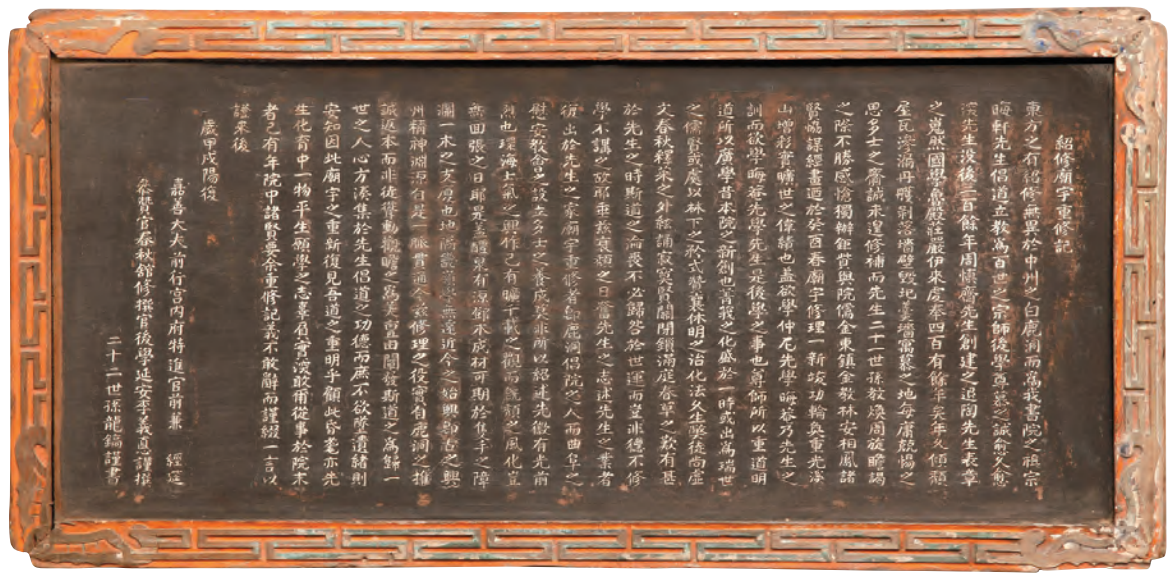 紹修廟宇重修記
東方之有紹修無異於中州之白鹿洞而爲我書院之祖宗
晦軒先生倡道立敎爲百世之宗師後學尊慕之誠愈久愈
深先生沒後二百餘年周愼齋先生創建之退陶先生表章
之嵬然國學黌殿莊嚴伊來虔奉四百有餘年矣年久傾頹
屋瓦滲漏丹雘剝落墻壁毁圮羹墻寓慕之地每有兢惕之
思多士之齎誠未遑修補而先生二十一世孫敎煥周旋瞻謁
之際不勝感愴獨辦鉅貲與院儒金東鎭金敎林安相鳳諸
賢協謀經畫迺於癸酉春廟宇修理一新竣功輪奐重光
山增彩實曠世之偉績也盖欲學仲尼先學晦菴乃先生之
訓而欲學晦菴先學先生是後學之事也尊師所以重道明
道所以廣學昔本院之新創也菁莪之化盛於一時或出爲瑞世
之儒賢或處以林下之矜式贊襄休明之治化法久生獘徒尚虛
文春秋釋菜之外絃誦寂寞賁關閉鎖滿庭春草之歎有甚
於先生之時斯道之淪喪不必歸咎於世運而豈非德不修
學不講之致耶垂玆衰頹之日奮先生之志述先生之業者
衍出於先生之家廟宇重修
慰安敎命
也環海士氣之興作已有曠千載之觀而
無回張之日耶
瀾一木之支廈也地
州稱神淵源有是一脈貫通今玆修理之役實有鹿洞之
誠返本而非徒聳動撤瞻之爲美亶由闡發斯道之爲歸一
世之人心方湊集於先生倡道之功德而庶不欲墜遺緒則
安知因此廟宇之重新復見吾道之重明乎顧此昏耄亦先
生化育中一物平生願學之志素有實深敢備從事於院末
者已有年院中諸賢要余重修記義不敢辭而謹綴一言以
諗來後
歲甲戌陽復
嘉善大夫前行宮內府特進官前兼　經筵
參贊官春秋館修撰官後學延安李義直謹撰
二十二世孫龍鎬謹書